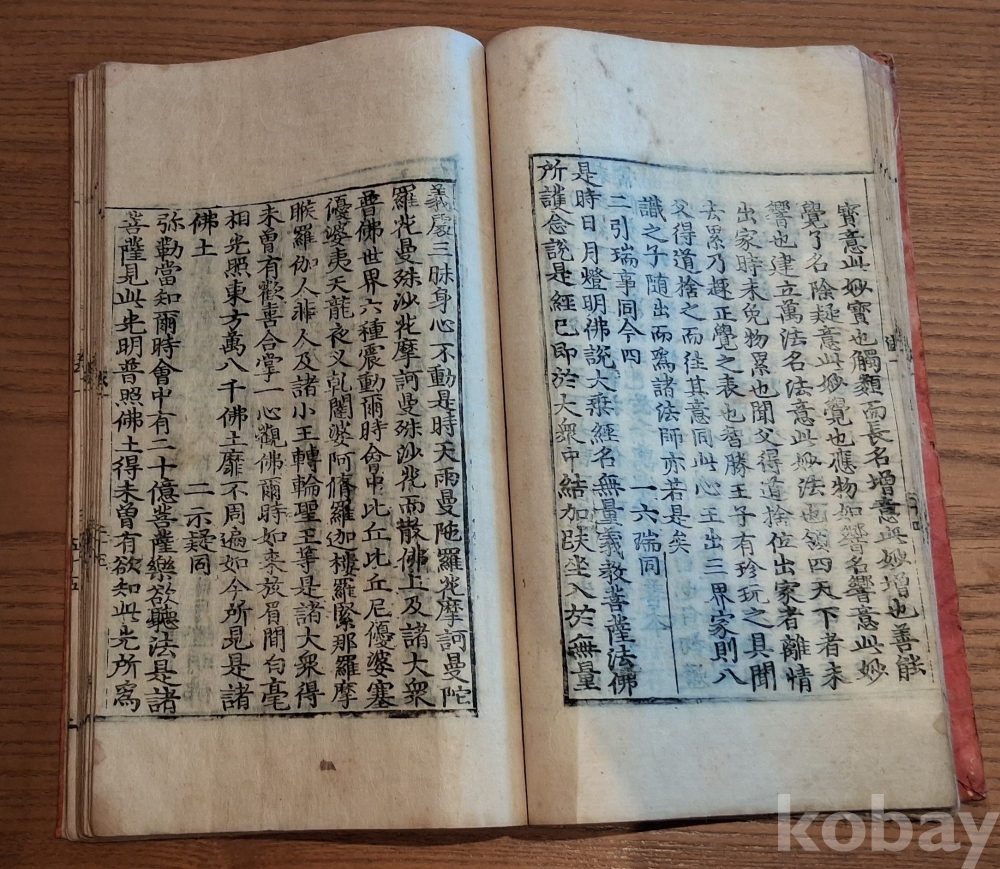 寶意此妙寶也觸類而長名增意此妙增也善能
覺了名除疑意此妙覺也應物如響名響意此妙
響也建立萬法名法意此妙法也領四天下者未
出家時未免物累也聞父得道捨位出家者離情
去累乃趣正覺之表也智勝王子有珍玩之具聞
父得道捨之而往其意同此心王出三界家則八
識之子隨出而爲諸法師亦若是矣
二引瑞事同今四 一六瑞同
是時日月燈明佛說大乗經名無量義教菩薩法佛
所護念說是經已即於大衆中結加趺坐入於無量
義處三昧身心不動是時天雨曼陁羅花摩訶曼陀
羅花曼殊沙花摩訶曼殊沙花而散佛上及諸大衆
普佛世界六種震動爾時會中比丘比丘尼優婆塞
優婆夷天龍夜叉乹闥婆阿脩羅迦樓羅緊那羅摩
睺羅伽人非人及諸小王轉輪聖王等是諸大衆得
未曾有歡喜合掌一心觀佛爾時如來放眉間白毫
相光照東方萬八千佛土靡不周遍如今所見是諸
佛土 二示疑同
彌勒當知爾時會中有二十億菩薩樂欲聽法是諸
菩薩見此光明普照佛土得未曾有欲知此光所爲
kobay